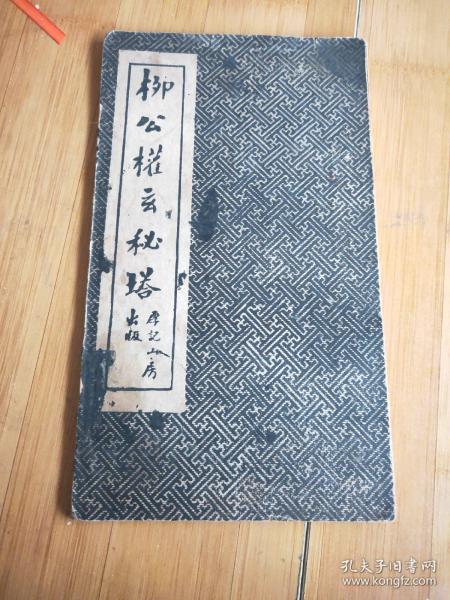 柳公權玄秘塔
記山房
出版
孔夫子旧书网
www.kongfz.com